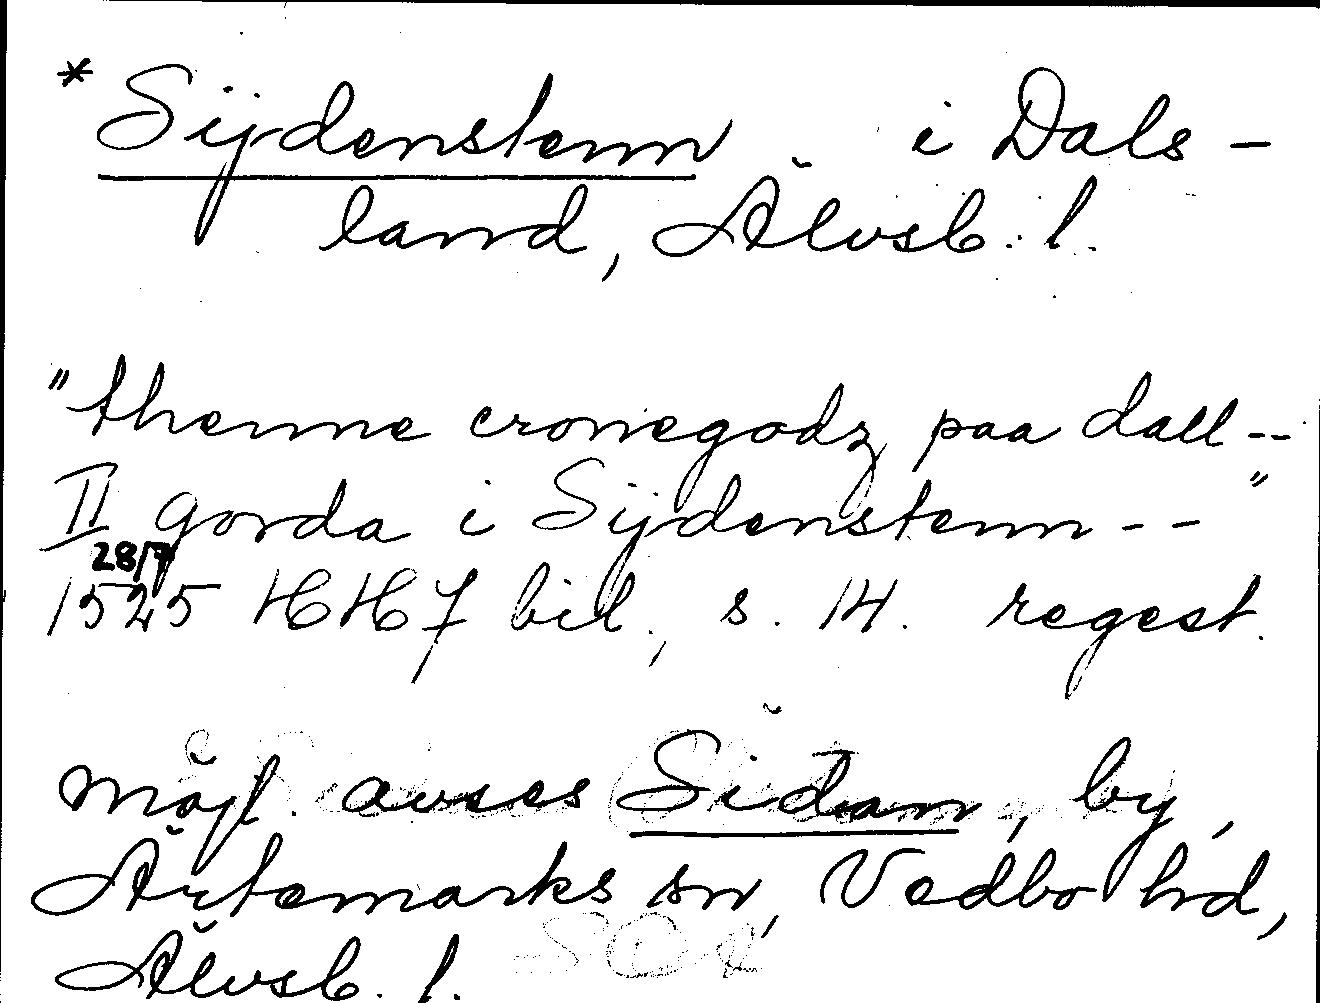 * Sijdenstenn i Dals-
land, Älvsb. l.
"thenne cronegodz paa dall--
II gorda i Sijdenstenn--"
28/7
1525 HH 7 bil., s. 14. regest.
möjl. avses Sidan, by,
Ärtemarks sn, Vedbo hd,
Älvsb. l.